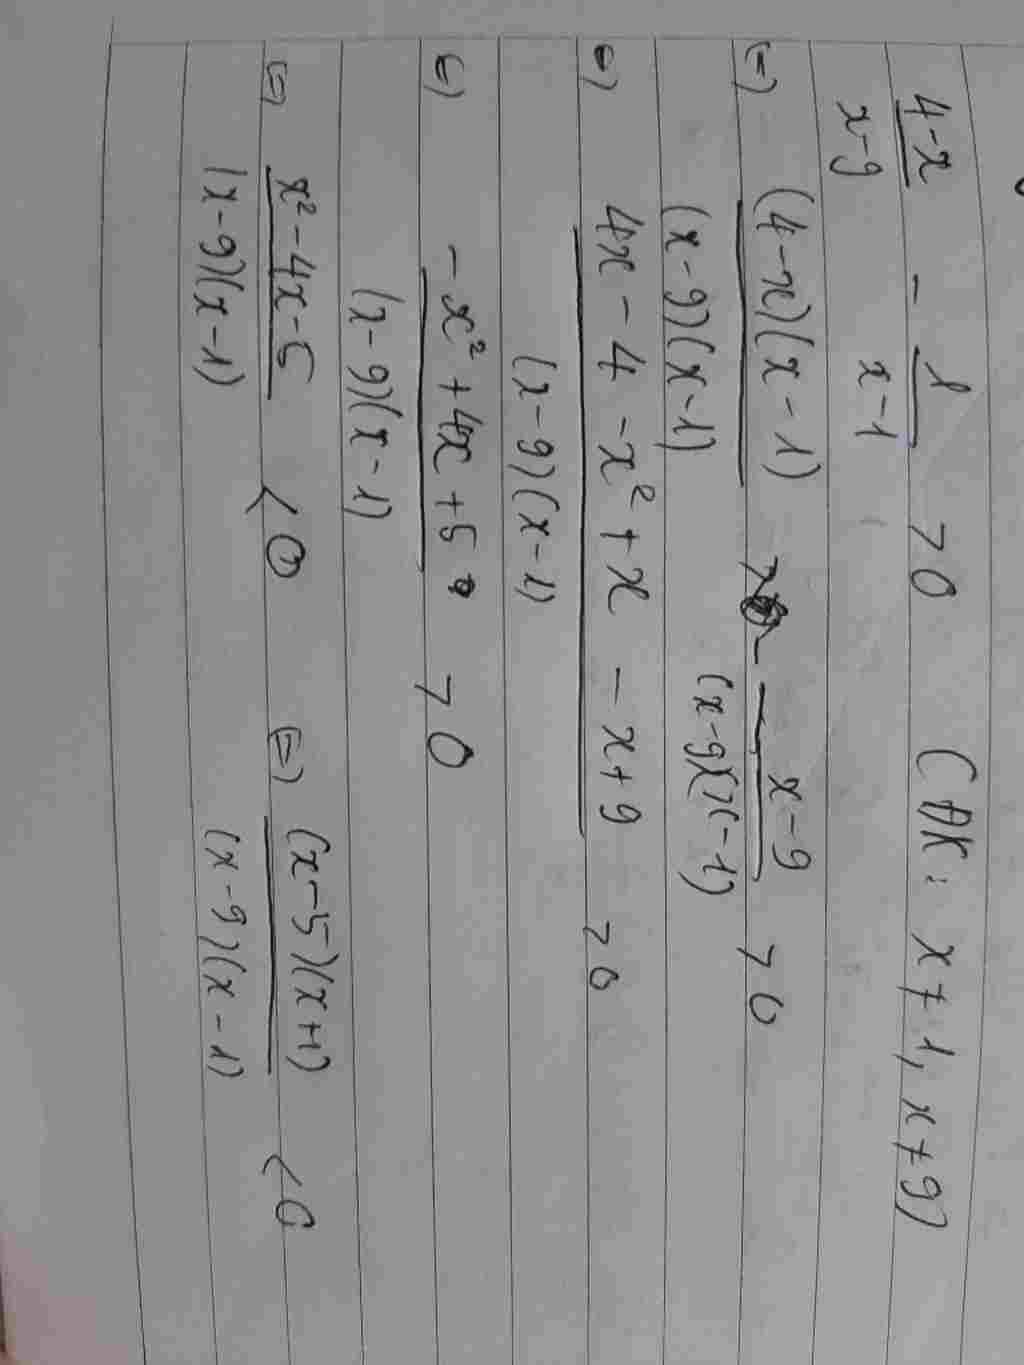 4-x/x-9 - 1/x-1 > 0 (ĐK: x≠1, x≠9)
(=) (4-x)(x-1)/(x-9)(x-1) - x-9/(x-9)(x-1) > 0
(=) 4x-4-x²+x-x+9/(x-9)(x-1) > 0
(=) -x²+4x+5/(x-9)(x-1) > 0
(=) x²-4x-5/(x-9)(x-1) < 0 (=) (x-5)(x+1)/(x-9)(x-1) < 0